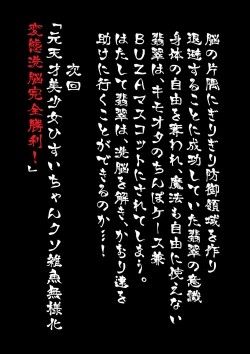 脳の片隅にぎりぎり防御領域を作り
退避することに成功していた翡翠の意識
身体の自由を奪われ、魔法も自由に使えない
翡翠は、キモオタのちんぽケース兼
BUZAマスコットにされてしまう。
はたして翡翠は、洗脳を解き、かもり達を
助けに行くことができるのか…!
次回
「元天才美少女ひすいちゃんクソ雑魚無様化
変態洗脳完全勝利!」